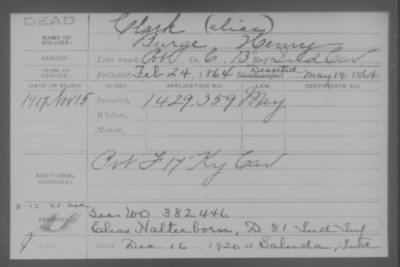 DEAD
NAME OF SOLDIER:
Clark (alias)
Burge Henry
SERVICE:
Late rank, Pvt Co. C, 13 Reg't Ind Cav
TERM OF SERVICE:
Enlisted Feb 24, 1864 Deserted May 14 1864
DATE OF FILING.
CLASS.
APPLICATION NO.
LAW.
CERTIFICATE NO.
1917 Nov 15
Invalid, 1429.359 May
Widow,
Minor,
ADDITIONAL SERVICES:
Pvt F 17 Ky Cav
8-12-21
See WO 882446
Elias Walterborn, D 81 Ind Inf
Died Dec 16 1920 at Saluda, Ind